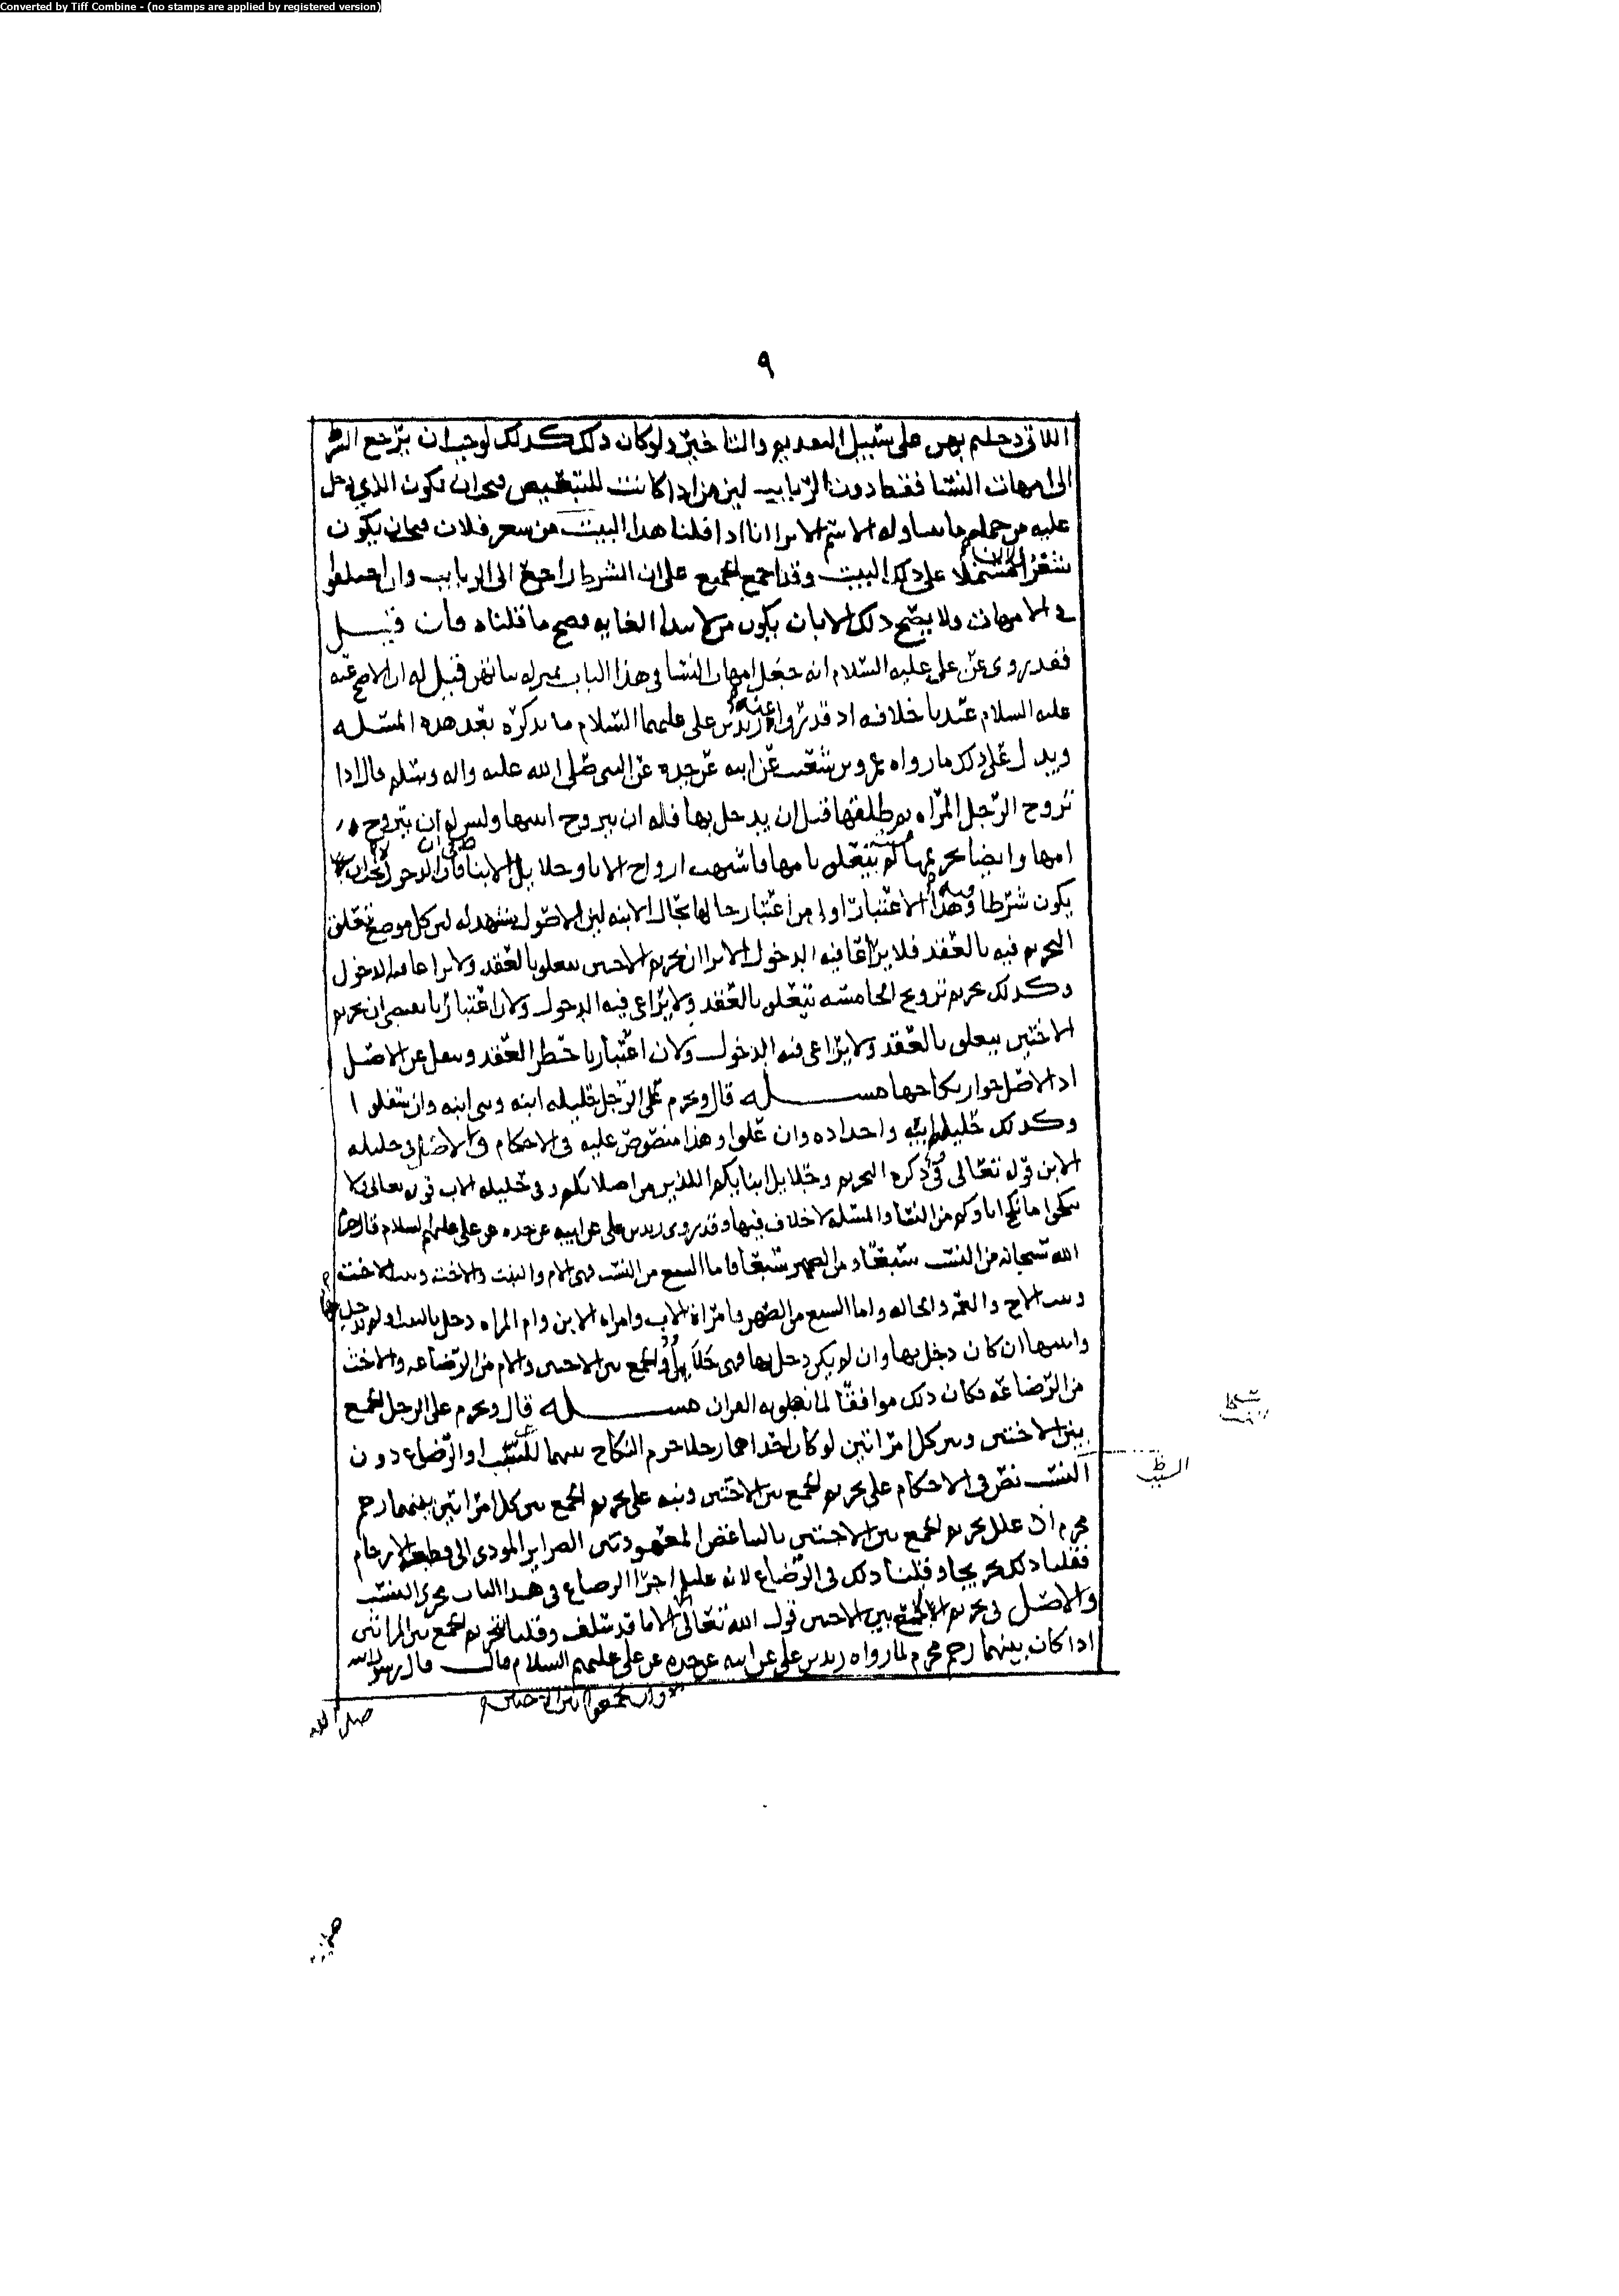 Converted by Tiff Combine - (no stamps are applied by registered version)
٩
اللاتي دخلتم بهن على سبيل التقديم والتاخير ولو كان ذلك كذلك لوجب ان يرجع الشرط
الى امهات النسا فقط دون الربايب لين من اذا كانت للتبعيض فيجب ان يكون الذي دخل
عليه من جملة ما يتناوله الاسم الا ترا انا اذا قلنا هذا البيت من شعر فلان فيجب ان يكون
شعر فلان مشتملا على ذلك البيت وقد اجمع الجميع على ان الشرط راجع الى الربايب وان اختلفوا
في الامهات ولا يصح ذلك الا بان يكون من لابتدا الغايه فصح ما قلناه فان قيل
فقد روي عن علي عليه السلام انه جعل امهات النسا في هذا الباب بمنزله بناتهن قيل له ان الاصح عنه
عليه السلام عندنا خلافه اذ قد روا عنه زيد بن علي عليهما السلام ما نذكره بعد هذه المسله
ويدل على ذلك ما رواه عمرو بن شعيب عن ابيه عن جده عن النبي صلى الله عليه واله وسلم قال اذا
تزوج الرجل المراه ثم طلقها قبل ان يدخل بها فله ان يتزوج ابنتها وليس له ان يتزوج
امها وايضا تحريمها لم يتعلق بامها فاشبهت ازواج الابا وحلايل الابنا في ان الدخول لا يجب ان
يكون شرطا فيه وهذا الاعتبار اولى من اعتبار حالها بحال الابنه لين الاصول يشهد له لين كل موضع تعلق
التحريم فيه بالعقد فلا يراعا فيه الدخول الا ترا ان تحريم الاختين يتعلق بالعقد ولا يراعا فيه الدخول
وكذلك تحريم تزويج الخامسه يتعلق بالعقد ولا يراعى فيه الدخول ولان اعتبارنا يقتضي ان تحريم
الاختين يتعلق بالعقد ولا يراعى فيه الدخول ولان اعتبارنا حظر العقد وينقل عن الاصل
اذ الاصل جواز نكاحها مسله قال ويحرم على الرجل حليله ابنه وبني ابنه وان سفلوا
وكذلك حليله ابيه واجداده وان علوا وهذا منصوص عليه في الاحكام والاصل في حليله
الابن قول تعالى في ذكره التحريم وحلايل ابنايكم الذين من اصلابكم وفي حليله الاب قوله تعالى ولا
تنكحوا ما نكح اباوكم من النسا والمسله لا خلاف فيها وقد روى زيد بن علي عن ابيه عن جده عن علي عليهم السلام قال حرم
الله سبحانه من النسب سبعا ومن الصهر سبعا فاما السبع من النسب فهي الام والبنت والاخت وبنت الاخت
وبنت الاخ والعمه والخاله واما السبع من الصهر فامراة الاب وامراه الابن وام المراه دخل بالبنت او لم يدخل بها
وابنتها ان كان دخل بها وان لم يكن دخل بها فهي حلال والجمع بين الاختين والام من الرضاعه والاخت
من الرضاعه فكان ذلك موافقا لما نطق به القران مسله قال ويحرم على الرجل الجمع
بين الاختين وبين كل امراتين لو كان احداهما رجلا حرم النكاح بينهما للنسب او الرضاع دون
السبب
النسب نص في الاحكام على تحريم الجمع بين الاختين ونبه على تحريم الجمع بين كل امراتين بينهما رحم
محرم اذ علل تحريم الجمع بين الاختين بالتباغض المعهود بين الضراير المودي الى قطيعه الارحام
فقلنا ذلك تخريجا وقلنا ذلك في الرضاع لانه عليلم اجرا الرضاع في هذا الباب مجرى النسب
والاصل في تحريم الجمع بين الاختين قول الله تعالى الا ما قد سلف وقلنا تحريم الجمع بين المراتين
اذا كان بينهما رحم محرم لما رواه زيد بن علي عن ابيه عن جده عن علي عليهم السلام قال قال رسول الله
وان تجمعوا بين الاختين
صلى الله